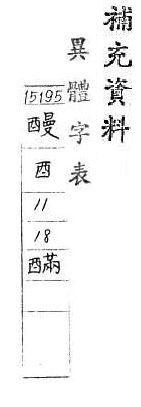 補充資料
異體字表
15195
䤍
酉
11
18